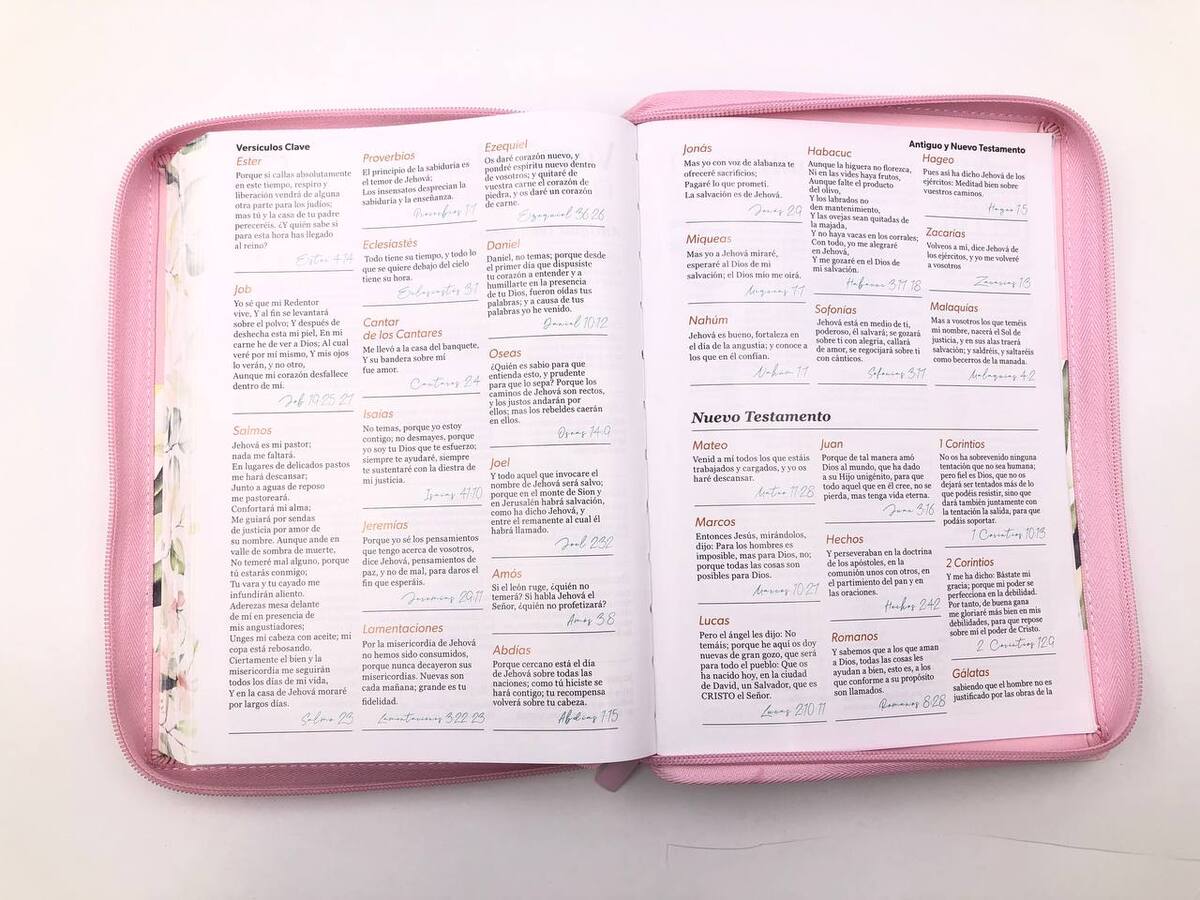 Versículos Clave
Ester
Porque si callas absolutamente
en este tiempo, respiro y
liberación vendrá de alguna
otra parte para los judíos;
mas tú y la casa de tu padre
pereceréis. ¿Y quién sabe si
para esta hora has llegado
al reino?
Ester 4:14
Job
Yo sé que mi Redentor
vive, Y al fin se levantará
sobre el polvo; Y después de
deshecha esta mi piel, En mi
carne he de ver a Dios; Al cual
veré por mí mismo, Y mis ojos
lo verán, y no otro,
Aunque mi corazón desfallece
dentro de mí.
Job 19:25-27
Salmos
Jehová es mi pastor;
nada me faltará.
En lugares de delicados pastos
me hará descansar;
Junto a aguas de reposo
me pastoreará.
Confortará mi alma;
Me guiará por sendas
de justicia por amor de
su nombre. Aunque ande en
valle de sombra de muerte,
No temeré mal alguno, porque
tú estarás conmigo;
Tu vara y tu cayado me
infundirán aliento.
Aderezas mesa delante
de mí en presencia de
mis angustiadores;
Unges mi cabeza con aceite; mi
copa está rebosando.
Ciertamente el bien y la
misericordia me seguirán
todos los días de mi vida,
Y en la casa de Jehová moraré
por largos días.
Salmo 23
Proverbios
El principio de la sabiduría es
el temor de Jehová;
Los insensatos desprecian la
sabiduría y la enseñanza.
Proverbios 1:7
Eclesiastés
Todo tiene su tiempo, y todo lo
que se quiere debajo del cielo
tiene su hora.
Eclesiastés 3:1
Cantar
de los Cantares
Me llevó a la casa del banquete,
Y su bandera sobre mí
fue amor.
Cantares 2:4
Isaías
No temas, porque yo estoy
contigo; no desmayes, porque
yo soy tu Dios que te esfuerzo;
siempre te ayudaré, siempre
te sustentaré con la diestra de
mi justicia.
Isaías 41:10
Jeremías
Porque yo sé los pensamientos
que tengo acerca de vosotros,
dice Jehová, pensamientos de
paz, y no de mal, para daros el
fin que esperáis.
Jeremías 29:11
Lamentaciones
Por la misericordia de Jehová
no hemos sido consumidos,
porque nunca decayeron sus
misericordias. Nuevas son
cada mañana; grande es tu
fidelidad.
Lamentaciones 3:22-23
Ezequiel
Os daré corazón nuevo, y
pondré espíritu nuevo dentro
de vosotros; y quitaré de
vuestra carne el corazón de
piedra, y os daré un corazón
de carne.
Ezequiel 36:26
Daniel
Daniel, no temas; porque desde
el primer día que dispusiste
tu corazón a entender y a
humillarte en la presencia
de tu Dios, fueron oídas tus
palabras; y a causa de tus
palabras yo he venido.
Daniel 10:12
Oseas
¿Quién es sabio para que
entienda esto, y prudente
para que lo sepa? Porque los
caminos de Jehová son rectos,
y los justos andarán por
ellos; mas los rebeldes caerán
en ellos.
Oseas 14:9
Joel
Y todo aquel que invocare el
nombre de Jehová será salvo;
porque en el monte de Sion y
en Jerusalén habrá salvación,
como ha dicho Jehová, y
entre el remanente al cual él
habrá llamado.
Joel 2:32
Amós
Si el león ruge, ¿quién no
temerá? Si habla Jehová el
Señor, ¿quién no profetizará?
Amós 3:8
Abdías
Porque cercano está el día
de Jehová sobre todas las
naciones; como tú hiciste se
hará contigo; tu recompensa
volverá sobre tu cabeza.
Abdías 1:15
Antiguo y Nuevo Testamento
Jonás
Mas yo con voz de alabanza te
ofreceré sacrificios;
Pagaré lo que prometí.
La salvación es de Jehová.
Jonás 2:9
Miqueas
Mas yo a Jehová miraré,
esperaré al Dios de mi
salvación; el Dios mío me oirá.
Miqueas 7:7
Nahúm
Jehová es bueno, fortaleza en
el día de la angustia; y conoce a
los que en él confían.
Nahúm 1:7
Habacuc
Aunque la higuera no florezca,
Ni en las vides haya frutos,
Aunque falte el producto
del olivo,
Y los labrados no
den mantenimiento,
Y las ovejas sean quitadas de
la majada,
Y no haya vacas en los corrales;
Con todo, yo me alegraré
en Jehová,
Y me gozaré en el Dios de
mi salvación.
Habacuc 3:17-18
Sofonías
Jehová está en medio de ti,
poderoso, él salvará; se gozará
sobre ti con alegría, callará
de amor, se regocijará sobre ti
con cánticos.
Sofonías 3:17
Hageo
Pues así ha dicho Jehová de los
ejércitos: Meditad bien sobre
vuestros caminos.
Hageo 1:5
Zacarías
Volveos a mí, dice Jehová de
los ejércitos, y yo me volveré
a vosotros
Zacarías 1:3
Malaquías
Mas a vosotros los que teméis
mi nombre, nacerá el Sol de
justicia, y en sus alas traerá
salvación; y saldréis, y saltaréis
como becerros de la manada.
Malaquías 4:2
Nuevo Testamento
Mateo
Venid a mí todos los que estáis
trabajados y cargados, y yo os
haré descansar.
Mateo 11:28
Marcos
Entonces Jesús, mirándolos,
dijo: Para los hombres es
imposible, mas para Dios, no;
porque todas las cosas son
posibles para Dios.
Marcos 10:27
Lucas
Pero el ángel les dijo: No
temáis; porque he aquí os doy
nuevas de gran gozo, que será
para todo el pueblo: Que os
ha nacido hoy, en la ciudad
de David, un Salvador, que es
CRISTO el Señor.
Lucas 2:10-11
Juan
Porque de tal manera amó
Dios al mundo, que ha dado
a su Hijo unigénito, para que
todo aquel que en él cree, no se
pierda, mas tenga vida eterna.
Juan 3:16
Hechos
Y perseveraban en la doctrina
de los apóstoles, en la
comunión unos con otros, en
el partimiento del pan y en
las oraciones.
Hechos 2:42
Romanos
Y sabemos que a los que aman
a Dios, todas las cosas les
ayudan a bien, esto es, a los
que conforme a su propósito
son llamados.
Romanos 8:28
1 Corintios
No os ha sobrevenido ninguna
tentación que no sea humana;
pero fiel es Dios, que no os
dejará ser tentados más de lo
que podéis resistir, sino que
dará también juntamente con
la tentación la salida, para que
podáis soportar.
1 Corintios 10:13
2 Corintios
Y me ha dicho: Bástate mi
gracia; porque mi poder se
perfecciona en la debilidad.
Por tanto, de buena gana
me gloriaré más bien en mis
debilidades, para que repose
sobre mí el poder de Cristo.
2 Corintios 12:9
Gálatas
sabiendo que el hombre no es
justificado por las obras de la